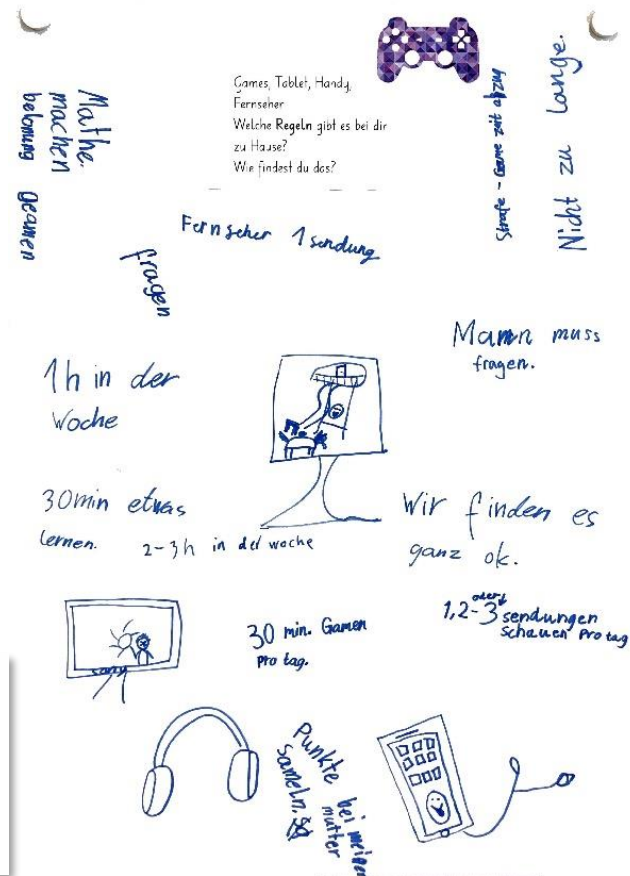 Games, Tablet, Handy,
Fernseher
Welche Regeln gibt es bei dir
zu Hause?
Wie findest du das?
Mathe.
machen
belonung geamen
Strafe - Game zeit abzug
Nicht zu lange.
Fernseher 1 sendung
fragen
Mamn muss
fragen.
1h in der
Woche
30min etwas
lernen.
2-3h in der woche
Wir finden es
ganz ok.
sony
30 min. Gamen
pro tag.
oder
1,2-3 sendungen
schauen pro tag
Punkte bei meiner
mutter
sameln.